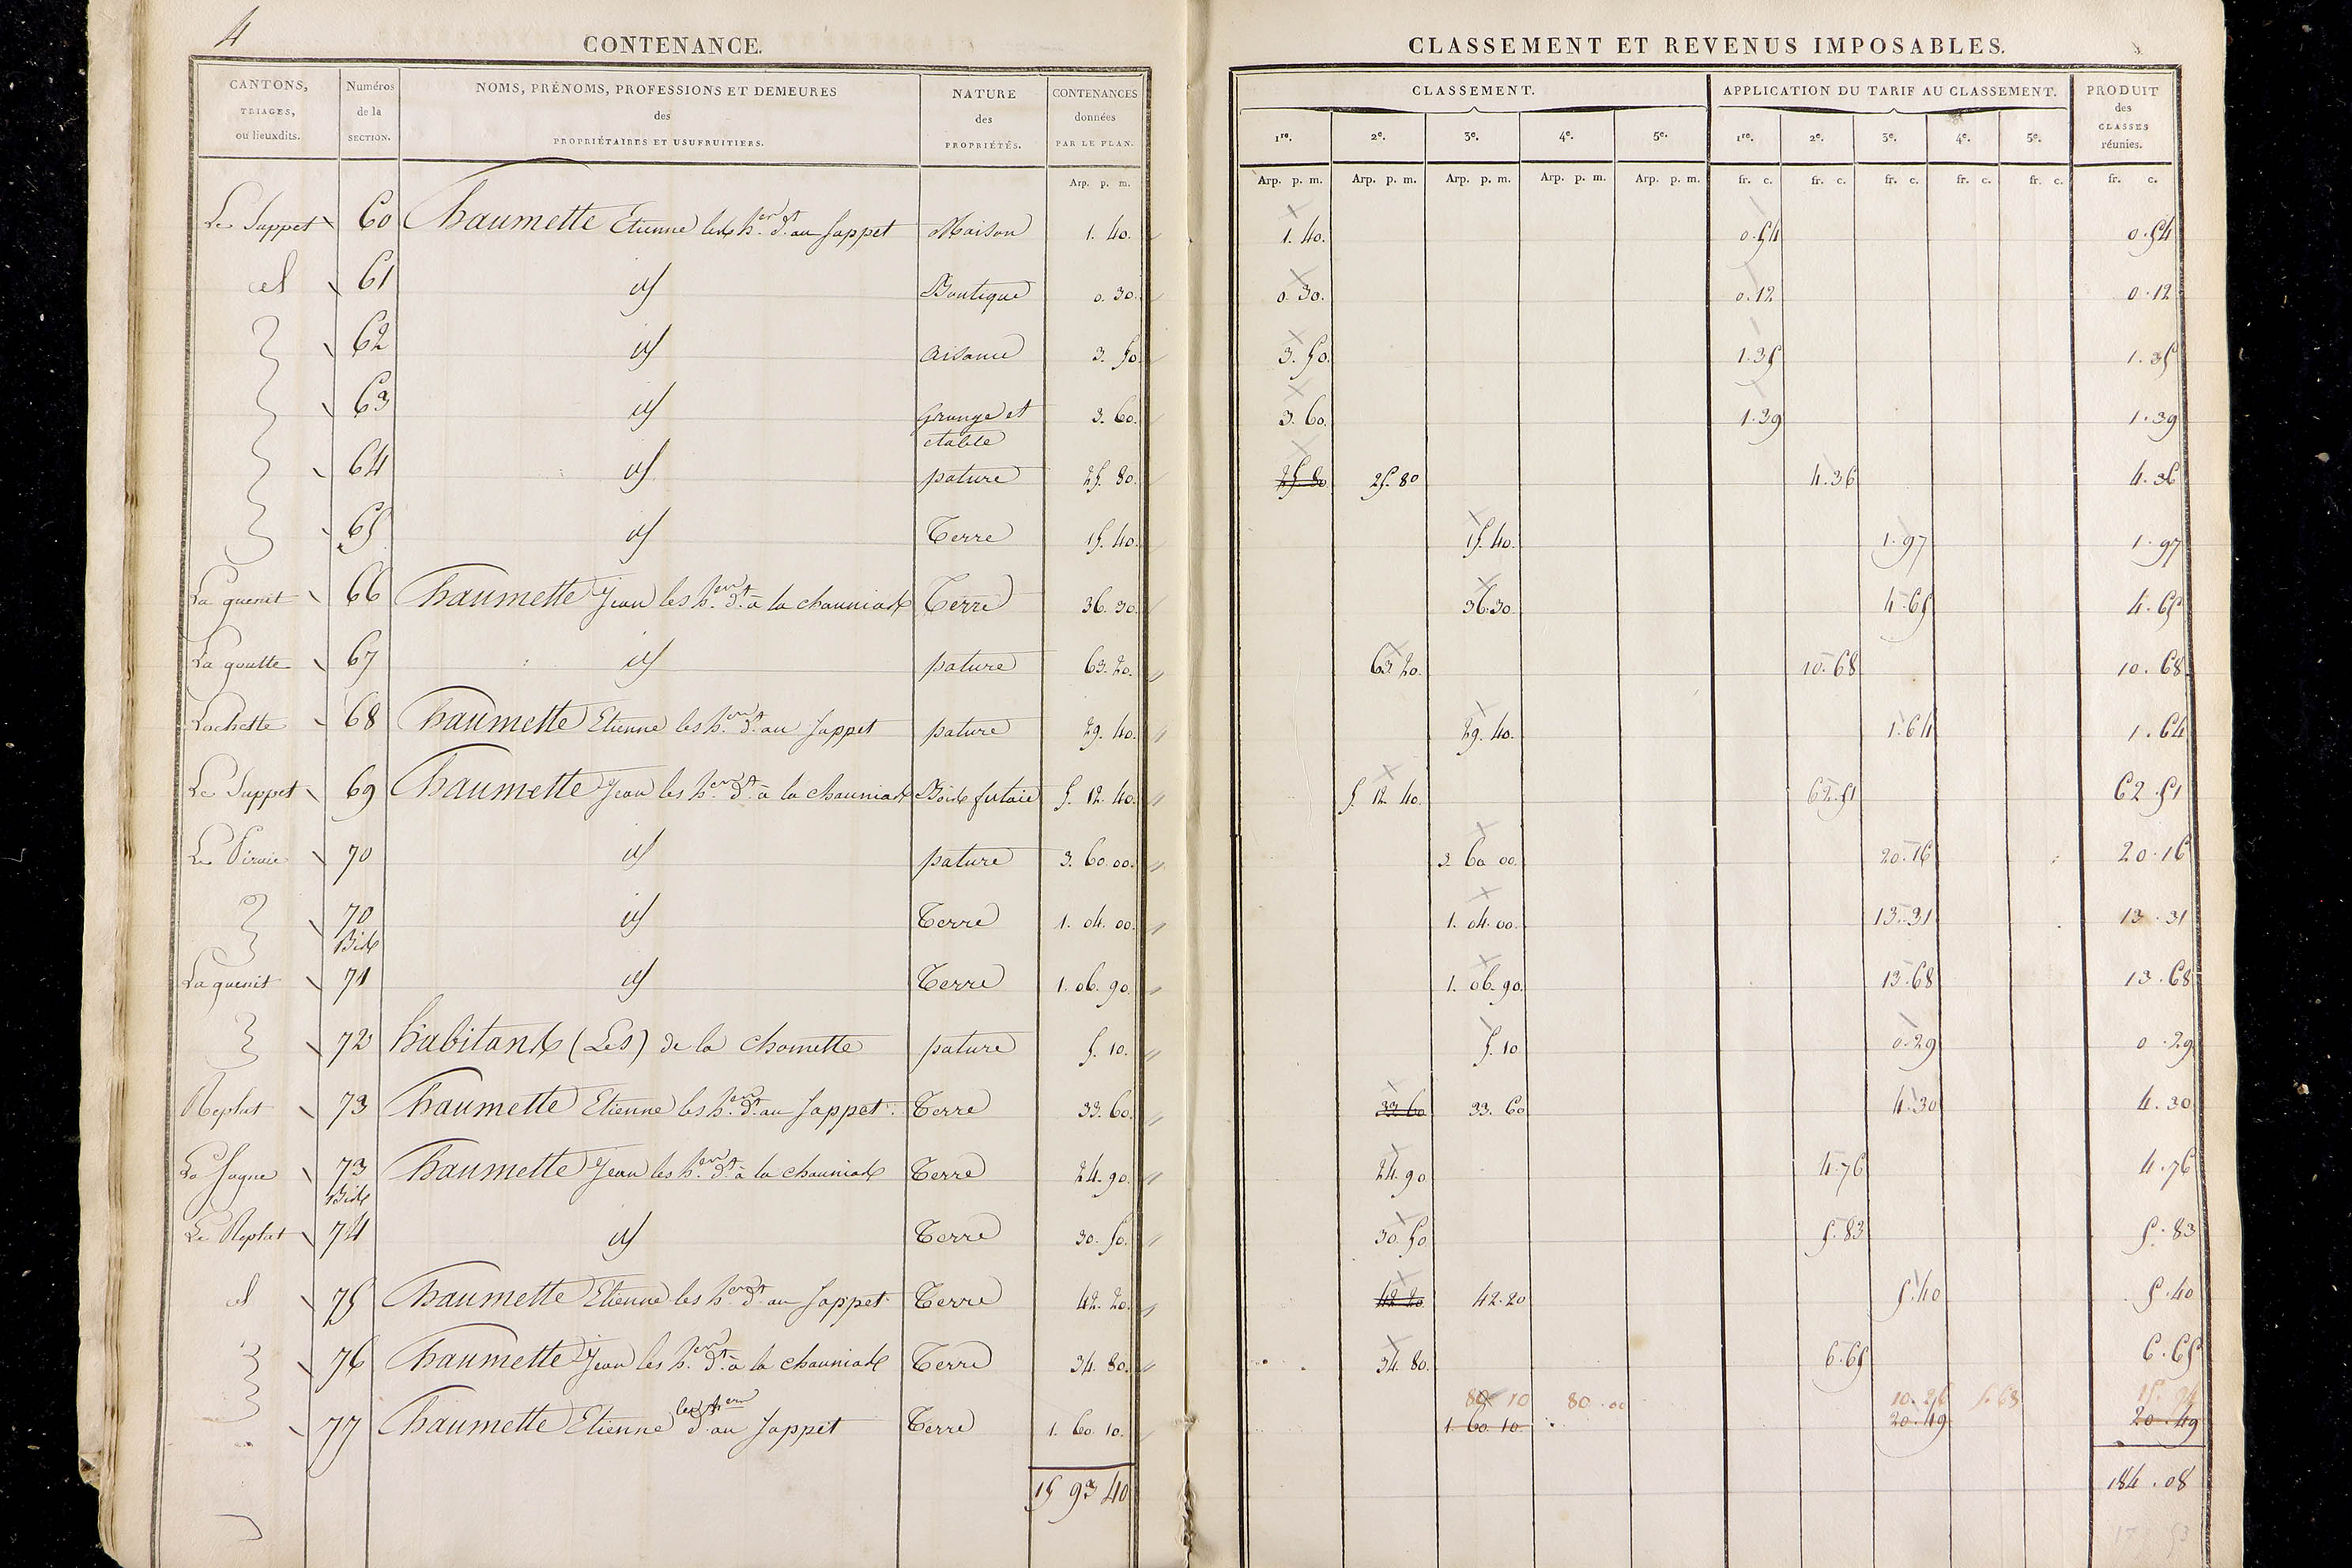 4
CONTENANCE.
CANTONS, TRIAGES, ou lieuxdits.
Numéros de la SECTION.
NOMS, PRÉNOMS, PROFESSIONS ET DEMEURES des PROPRIÉTAIRES ET USUFRUITIERS.
NATURE des PROPRIÉTÉS.
CONTENANCES données PAR LE PLAN.
Arp. p. m.
CLASSEMENT ET REVENUS IMPOSABLES.
CLASSEMENT.
APPLICATION DU TARIF AU CLASSEMENT.
PRODUIT des CLASSES réunies.
1re. 2e. 3e. 4e. 5e. 1re. 2e. 3e. 4e. 5e.
Arp. p. m. Arp. p. m. Arp. p. m. Arp. p. m. Arp. p. m. fr. c. fr. c. fr. c. fr. c. fr. c. fr. c.
Le Sappet 60 Chaumette Etienne les her. dt. au Sappet Maison 1. 40. 1. 40. 0.54 0.54
id 61 id Boutique 0. 30. 0. 30. 0.12 0.12
62 id aisance 3. 50. 3. 50. 1.35 1.35
63 id Grange et etable 3. 60. 3. 60. 1.39 1.39
64 id pature 25. 80. 25. 80 25. 80 4.36 4.36
65 id Terre 15. 40. 15. 40. 1.97 1.97
66 Chaumette Jean les her. dt. à la chauniade Terre 36. 30. 36.30. 4.65 4.65
La goutte 67 id pature 63. 20. 63. 20. 10.68 10.68
Lachette 68 Chaumette Etienne les her. dt. au Sappet pature 29. 40. 29. 40. 1.64 1.64
Le Sappet 69 Chaumette Jean les her. dt. à la chauniade Bois futaie 5. 12. 40. 5. 12. 40. 62.51 62.51
70 id pature 3. 60. 00. 3. 60. 00. 20.16 20.16
70 Bis id Terre 1. 04. 00. 1. 04. 00. 13.31 13.31
71 id Terre 1. 06. 90. 1. 06. 90. 13.68 13.68
72 habitans (Les) de la Chomette pature 5. 10. 5. 10 0.29 0.29
Replat 73 Chaumette Etienne les her. dt. au Sappet. Terre 33. 60. 33 60 33. 60 4.30 4.30
La Sagne 73 Bis Chaumette Jean les her. dt. à la chauniade Terre 24. 90. 24. 90 4.76 4.76
Le Replat 74 id Terre 30. 50. 30. 50 5.83 5.83
id 75 Chaumette Etienne les her. dt. au Sappet. Terre 42. 20. 42 20 42.20 5.40 5.40
76 Chaumette Jean les her. dt. à la chauniade Terre 34. 80. 34. 80. 6.65 6.65
les her 80 10 80.00 10.26 5.68
77 Chaumette Etienne dt. au Sappet Terre 1. 60. 10. 1. 60. 10. 20.49 20.49
15 93 40 184.08